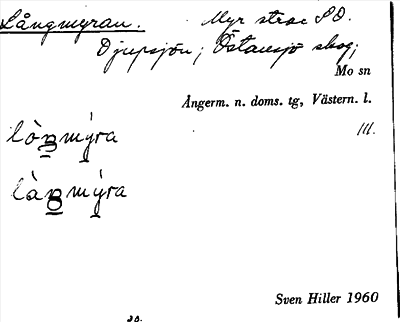 Långmyran. Myr strax SO.
Djupsjön; Östansjö skog;
Mo sn
Ångerm. n. doms. tg, Västern. l.
lò̱ŋmý̱ra
là̱ŋmý̱ra
Sven Hiller 1960